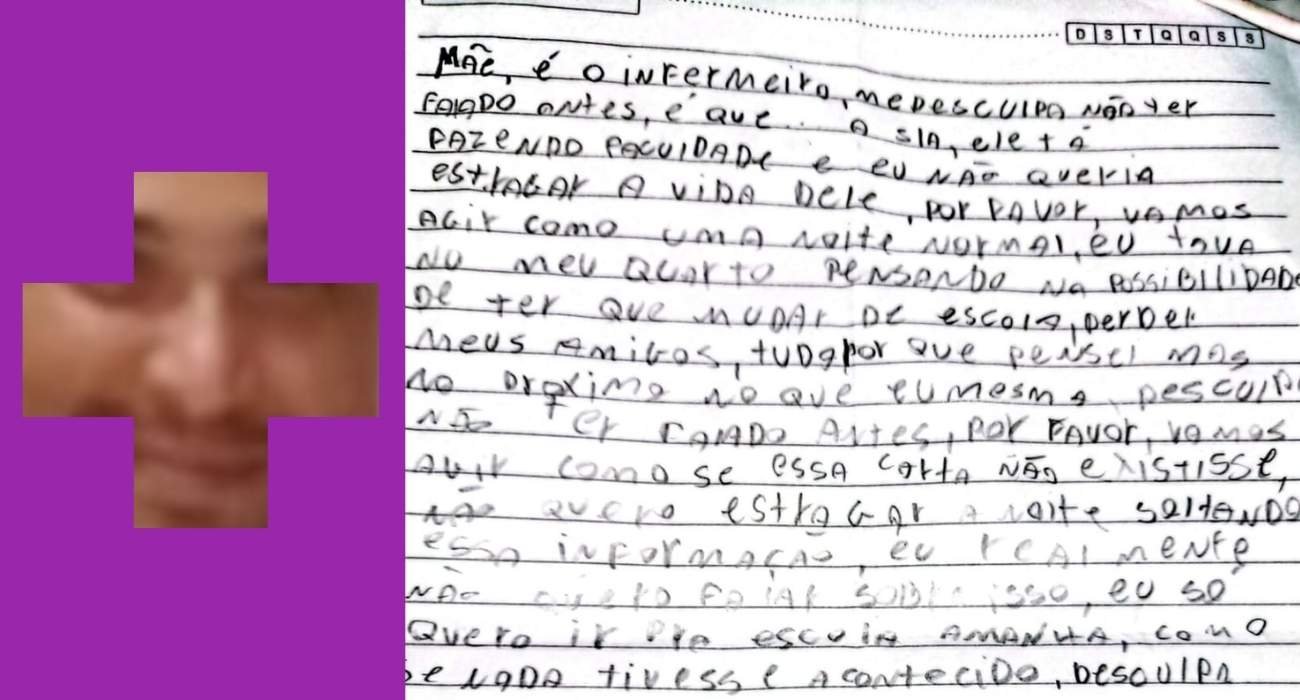 D S T Q Q S S
MÃE, é O INFERMEIRO, ME DESCULPA NÃO TER
FALADO ANTES, é QUE... A SIA, ELE TÁ
FAZENDO FACULDADE E EU NÃO QUERIA
ESTRAGAR A VIDA DELE, POR FAVOR, VAMOS
AGIR COMO UMA NOITE NORMAL, EU TAVA
NO MEU QUARTO PENSANDO NA POSSIBILIDADE
DE TER QUE MUDAR DE ESCOLA, PERDER
MEUS AMIGOS, TUDO POR QUE PENSEI MAS
NO PROXIMO NO QUE EU MESMA, DESCULPA
NÃO TER FALADO ANTES, POR FAVOR, VAMOS
AGIR COMO SE ESSA CARTA NÃO EXISTISSE,
NÃO QUERO ESTRAGAR A NOITE SOLTANDO
ESSA INFORMAÇÃO, EU REALMENTE
NÃO QUERO FALAR SOBRE ISSO, EU SÓ
QUERO IR PRA ESCOLA AMANHÃ, COMO
SE NADA TIVESSE ACONTECIDO, DESCULPA